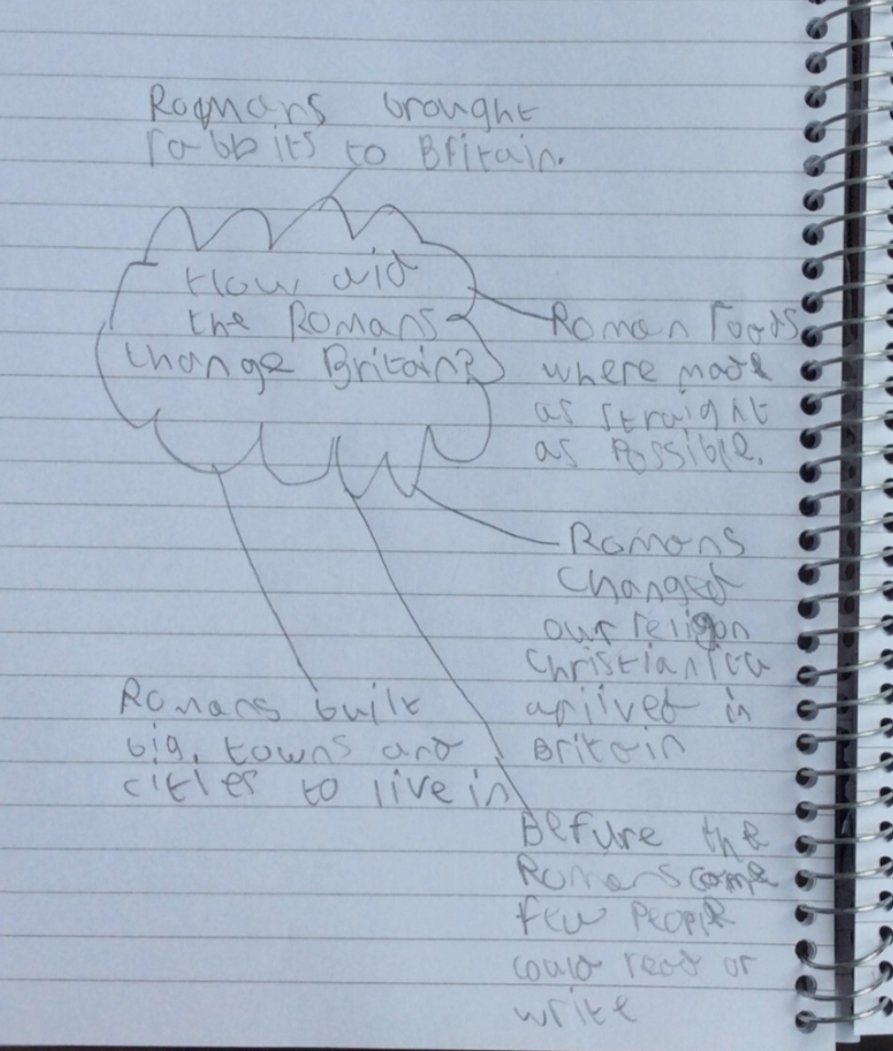 Romans brought
rabbits to Britain.
How did
the Romans
change Britain?
Roman roads
where made
as straight
as possible.
Romans
changed
our religon
christianity
arrived in
Britain
Romans built
big, towns and
cities to live in
Before the
Romans came
few people
could read or
write